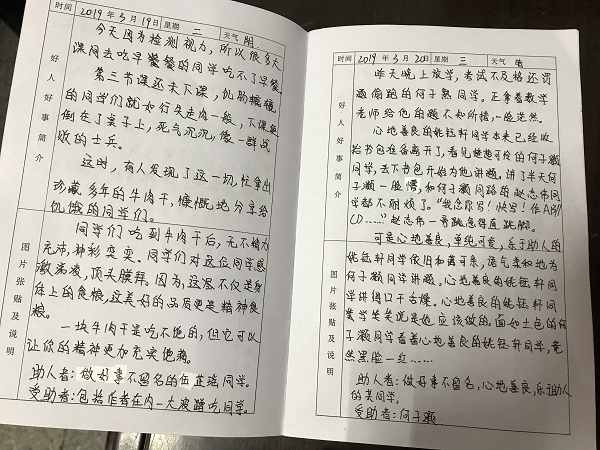 时间 2019年3月19日 星期 二 天气 阴
好人好事简介
今天因为检测视力，所以很多大
课间去吃早餐的同学吃不了早餐
第三节课还未下课，饥肠辘辘
的同学们就如行尸走肉一般，下课后
倒在了桌子上，死气沉沉，像一群战
败的士兵。
这时，有人发现了这一切，忙拿出
珍藏多年的牛肉干，慷慨地分享给
饥饿的同学们。
图片张贴及说明
同学们吃到牛肉干后，无不精力
充沛，神彩奕奕。同学们对这位同学感
激涕零，顶头膜拜。因为，这不仅是身
体上的食粮，这美好的品质更是精神食
粮。
一块牛肉干是吃不饱的，但它可以
让你的精神更加充实饱满。
助人者：做好事不留名的伍芷瑶同学。
受助者：包括作者在内一大波蹭吃同学。
时间 2019年3月20日 星期 三 天气
好人好事简介
昨天晚上放学，考试不及格还罚
逃跑的何子灏同学。正拿着数学
老师给他的题不知所措，一脸茫然。
心地善良的姚钰轩同学本来已经收
拾书包准备离开了，看见楚楚可怜的何子灏
同学，丢下书包开始为他讲题。讲了半天何子
灏一脸懵，和何子灏同路的赵志伟同
学都不耐烦了。“我念你写！快写！作AB//
CD……”赵志伟一旁跳急得直跳脚。
可是心地善良，单纯可爱，乐于助人的
图片张贴及说明
姚钰轩同学依旧和蔼可亲，语气柔和地为
何子灏同学讲题。心地善良的姚钰轩同
学讲得口干舌燥。心地善良的姚钰轩同
学笑笑说是她应该做的。面如土色的何
子灏同学看着心地善良的姚钰轩同学，竟
然黑脸一红……
助人者：做好事不留名，心地善良，乐于助人
的 同学。
受助者：何子灏